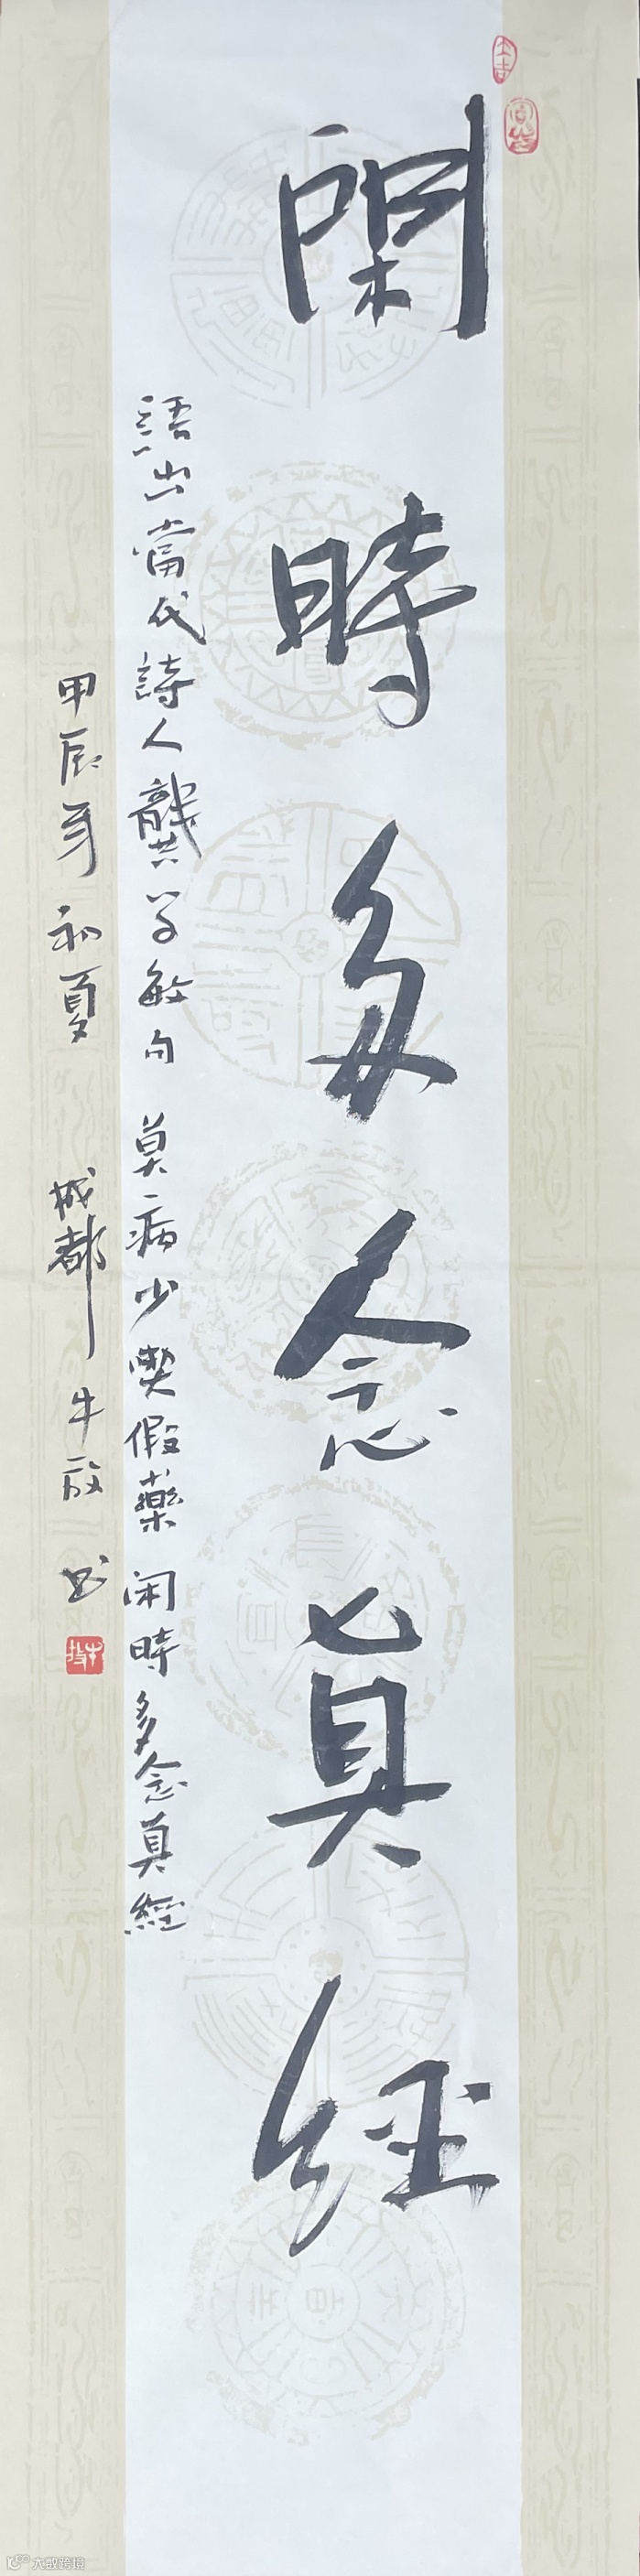 閑時多念真經
語出當代詩人龔學敏句 莫病少喫假藥 闲時多念真經
甲辰年初夏 成都 牛放 书
大数跨境